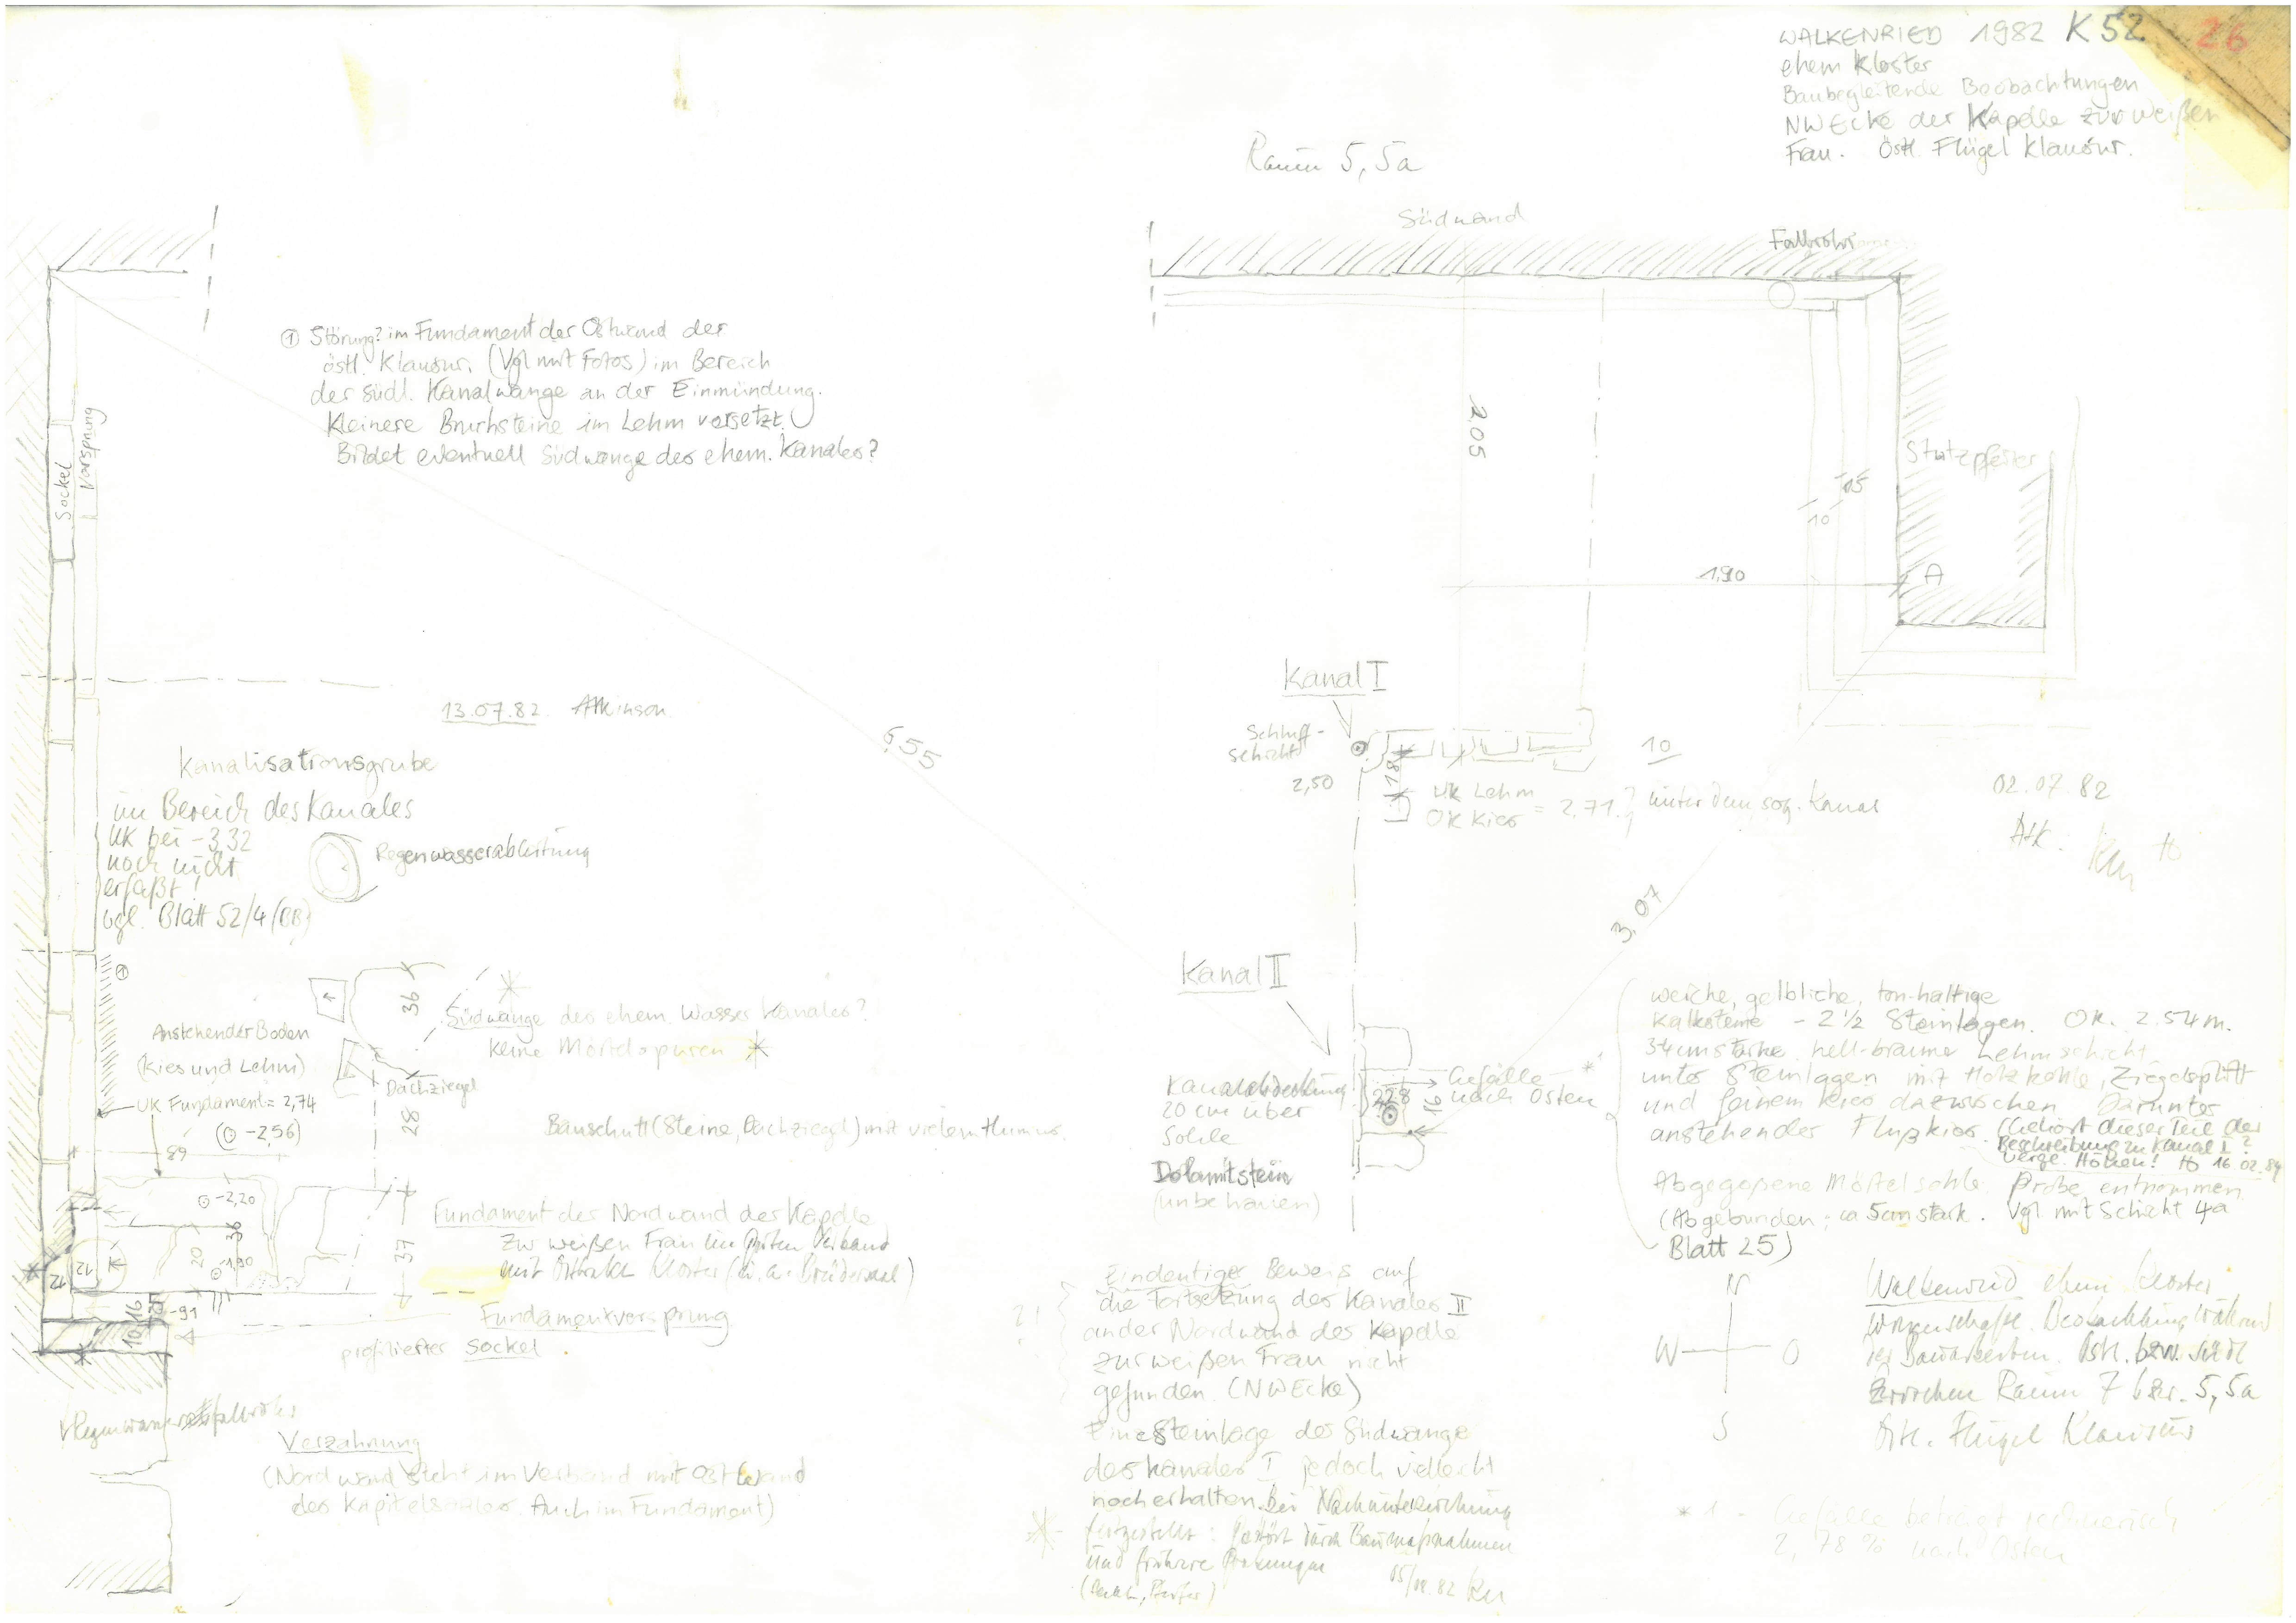 WALKENRIED 1982 K52 26
ehem Kloster
Baubegleitende Beobachtungen
NW Ecke der Kapelle zur weißen
Frau. Östl. Flügel Klausur.
Raum 5, 5a
Südwand
Fallrohr
① Störung? im Fundament der Ostwand der
östl. Klausur. (Vgl mit Fotos) im Bereich
der südl. Kanalwange an der Einmündung.
Kleinere Bruchsteine im Lehm versetzt.
Bildet eventuell Südwange des ehem. Kanales?
Sockel
Vorsprung
2,05
Stützpfeiler
15
10
1,90
A
13.07.82. Atkinson
6,55
Kanal I
Schluff-
schicht
2,50
18
10
UK Lehm
OK Kies = 2.71. ? unter dem sog. Kanal
02.07.82
Atk.
Kanalisationsgrube
im Bereich des Kanales
UK bei -3,32
noch nicht
erfaßt!
vgl. Blatt 52/4 (BB)
Regenwasserableitung
3,07
Kanal II
①
36
Südwange des ehem. Wasser Kanales?
keine Mörtelspuren
Anstehender Boden
(Kies und Lehm)
Dachziegel
UK Fundament = 2,74
(⊙ -2,56)
89
28
Bauschutt (Steine, Dachziegel) mit vielem Humus.
Kanalabdeckung
20 cm über
Sohle
Dolomitstein
(unbehauen)
Gefälle
nach Osten
228
16
weiche, gelbliche, ton-haltige
Kalksteine - 2½ Steinlagen. OK. 2.54 m.
34cm starke hell-braune Lehmschicht
unter Steinlagen mit Holzkohle, Ziegelsplitt
und feinem Kies dazwischen. Darunter
anstehender Flußkies. (Gehört dieser Teil der
Beschreibung zu Kanal I?
Vergl. Höhen! 16.02.84
Abgegossene Mörtelsohle. Probe entnommen
(Abgebunden; ca 5cm stark. Vgl mit Schicht 4a
Blatt 25)
-2,20
36
20
-1,90
37
K
12
12
10
16
-91
Fundament der Nordwand der Kapelle
zur weißen Frau im guten Verband
mit Kloster
Fundamentvorsprung
profilierter Sockel
Regenwasserfallrohr
Verzahnung
(Nordwand steht im Verband mit Ost Wand
des Kapitelsaales. Auch im Fundament)
Eindeutiger Beweis auf
die Fortsetzung des Kanales II
an der Nordwand des Kapelle
zur weißen Frau nicht
gefunden. (NW Ecke)
Eine Steinlage der Südwange
des Kanales I jedoch vielleicht
noch erhalten. Bei Nachuntersuchung
festgestellt: gestört durch Baumaßnahmen
und frühere Grabungen
82
N
W
O
S
Walkenried ehem Kloster
Wissenschaftl. Beobachtung während
der Bauarbeiten. Östl. bzw. südl
zwischen Raum 7 bzw. 5, 5a
Östl. Flügel Klausur
* 1 - Gefälle beträgt rechnerisch
2,78 % nach Osten